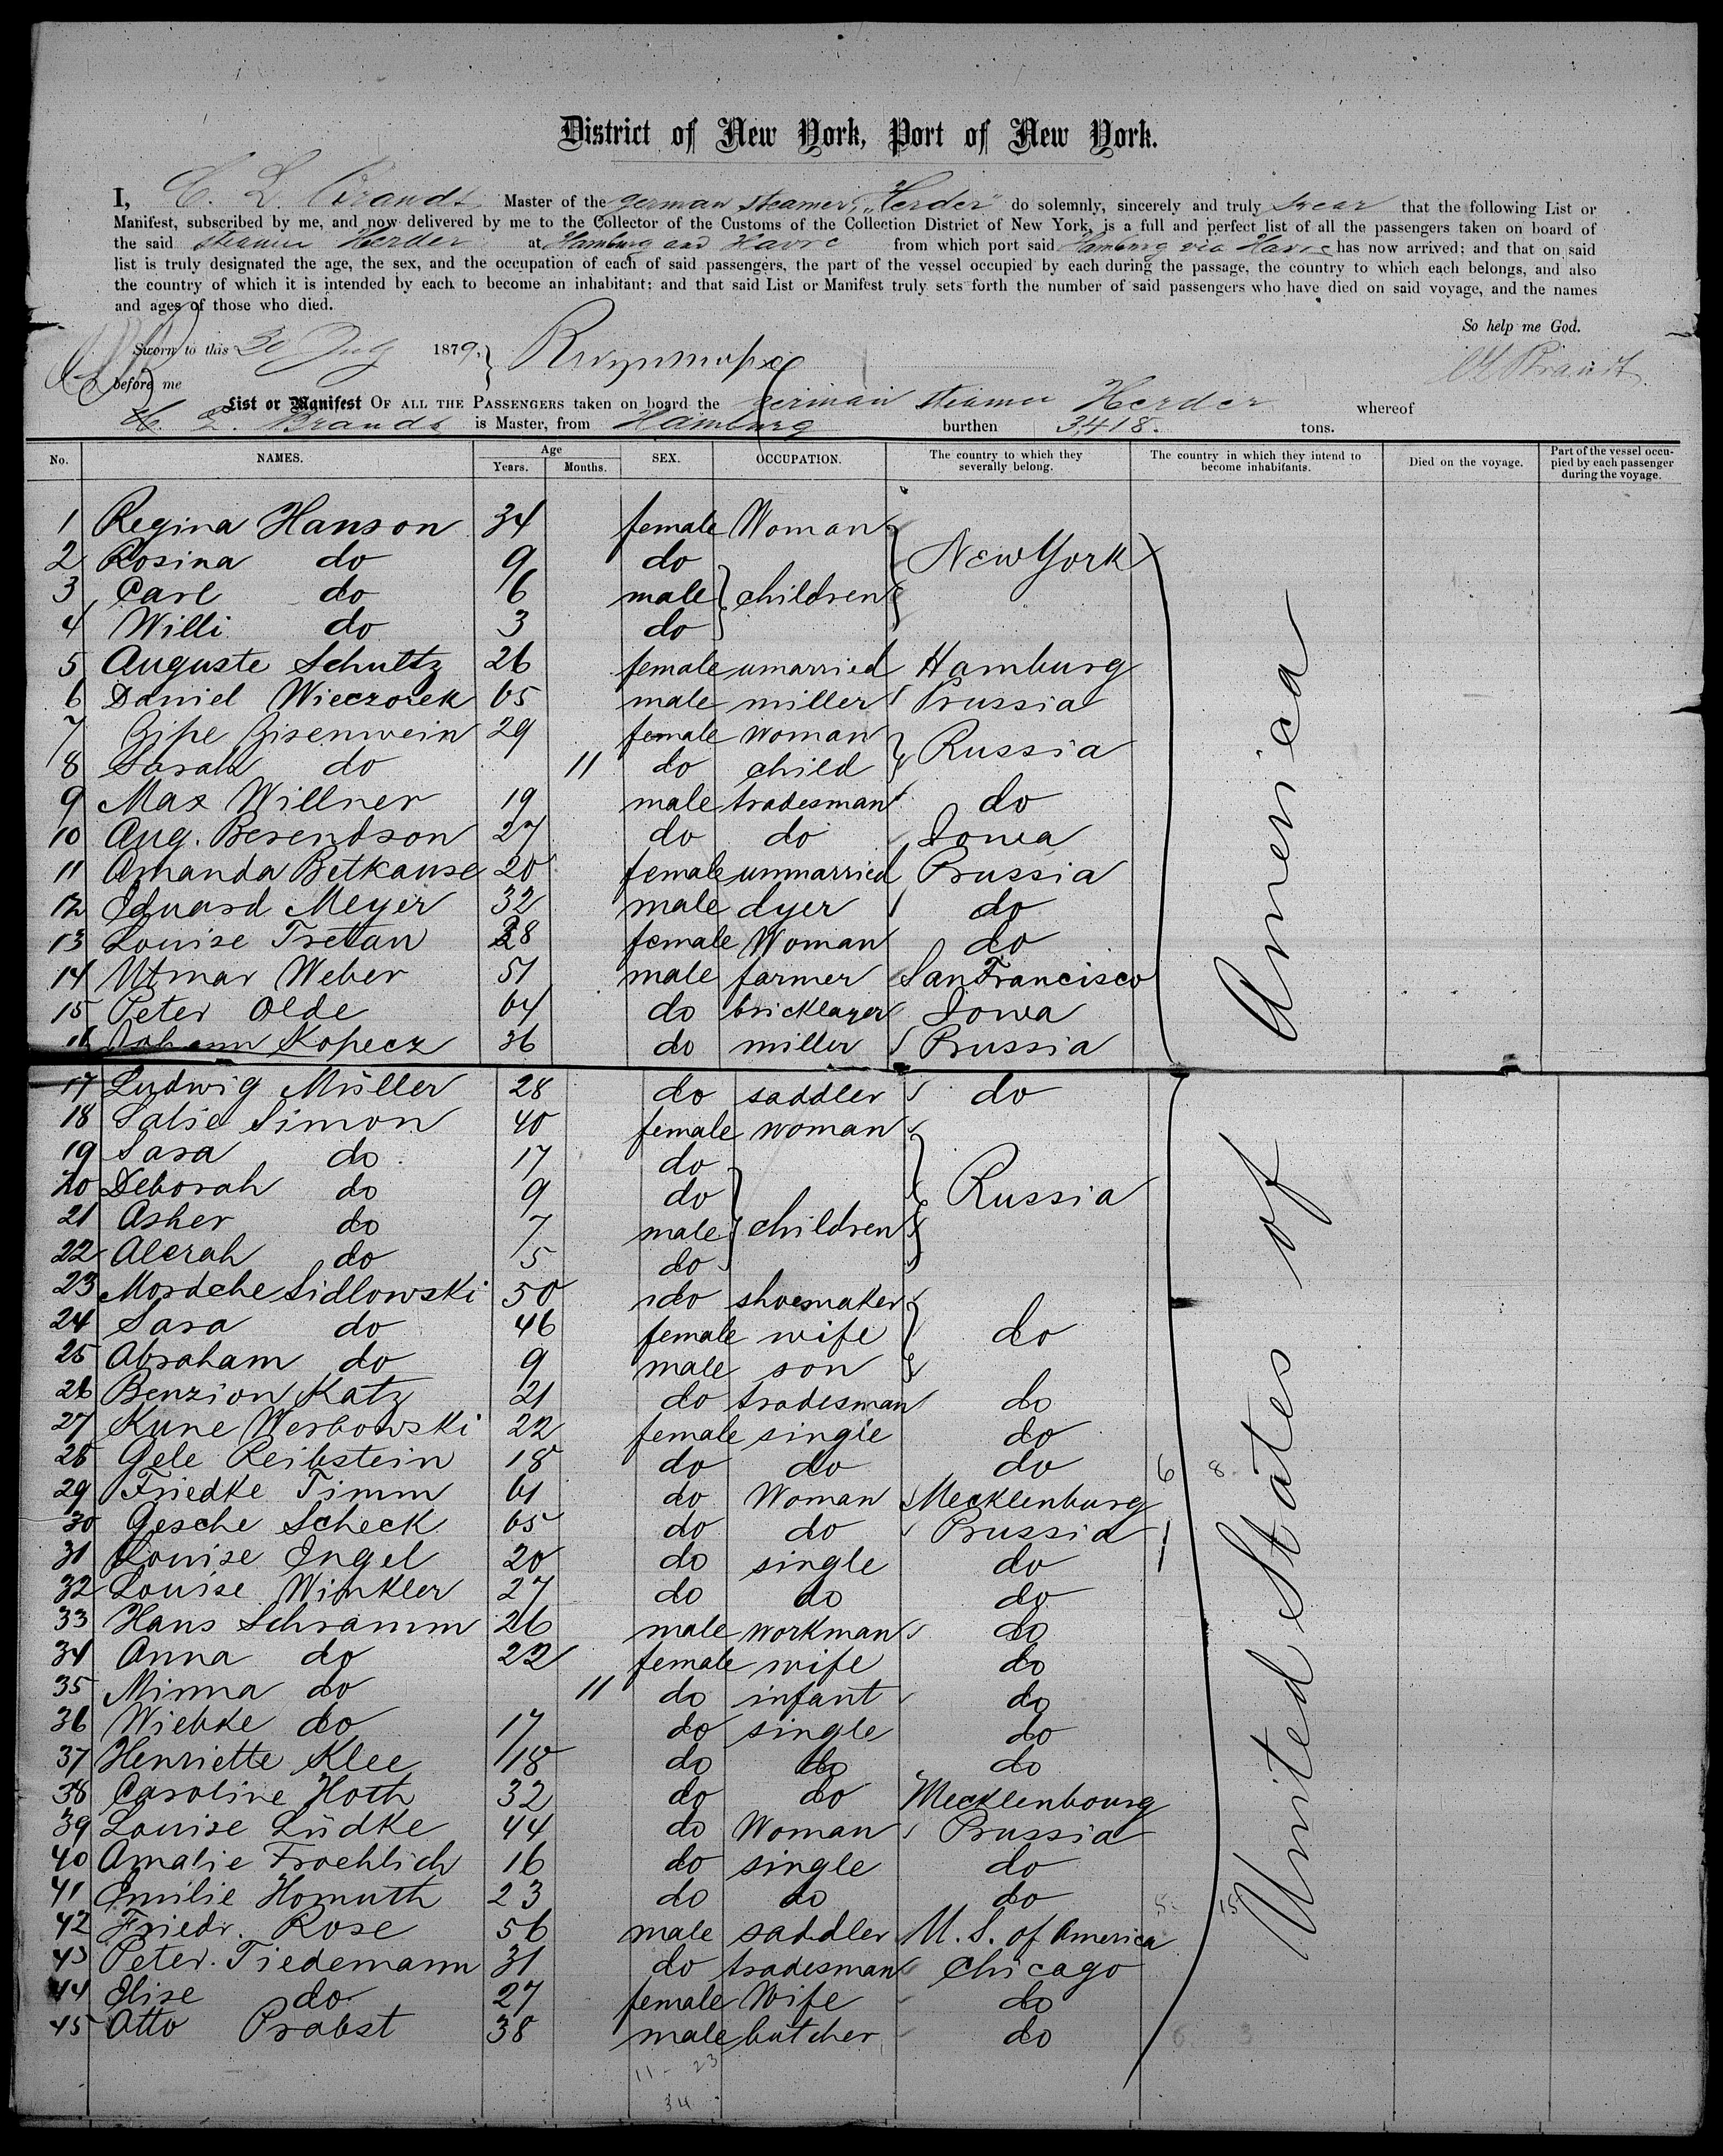 District of New York, Port of New York.
I, C. L. Brandt Master of the german steamer „Herder" do solemnly, sincerely and truly swear that the following List or
Manifest, subscribed by me, and now delivered by me to the Collector of the Customs of the Collection District of New York, is a full and perfect list of all the passengers taken on board of
the said steamer Herder at Hamburg and Havre from which port said Hamburg via Havre has now arrived; and that on said
list is truly designated the age, the sex, and the occupation of each of said passengers, the part of the vessel occupied by each during the passage, the country to which each belongs, and also
the country of which it is intended by each to become an inhabitant; and that said List or Manifest truly sets forth the number of said passengers who have died on said voyage, and the names
and ages of those who died.
So help me God.
Sworn to this 30 July 1879,
before me
C L Brandt
List or Manifest OF ALL THE PASSENGERS taken on board the german steamer Herder whereof
L. Brandt is Master, from Hamburg burthen 3,418. tons.
No. NAMES. Age Years. Months. SEX. OCCUPATION. The country to which they severally belong. The country in which they intend to become inhabitants. Died on the voyage. Part of the vessel occupied by each passenger during the voyage.
1 Regina Hanson 34 female Woman
2 Rosina do 9 do New York
3 Carl do 6 male children
4 Willi do 3 do
5 Auguste Schultz 26 female umarried Hamburg
6 Daniel Wieczorek 65 male miller Prussia
7 Gisenwein 29 female woman Russia
8 Sarah do 11 do child
9 Max Willner 19 male tradesman do
10 Aug. Berendson 27 do do Iowa
11 Amanda Betkause 20 female unmarried Prussia
12 Eduard Meyer 32 male dyer do
13 Louise Tretan 28 female Woman do
14 Weber 51 male farmer San Francisco
15 Peter Olde 64 do bricklayer Iowa
16 Johann Kopecz 36 do miller Prussia
17 Ludwig Müller 28 do saddler do
18 Salie Simon 40 female woman
19 Sara do 17 do
20 Deborah do 9 do Russia
21 Asher do 7 male children
22 Alcrah do 5 do
23 Mordche Sidlowski 50 do shoemaker
24 Sara do 46 female wife do
25 Abraham do 9 male son
26 Benzion Katz 21 do tradesman do
27 Kune Werbowski 22 female single do
28 Gele Reibstein 18 do do do 6 8
29 Friedke Timm 61 do Woman Mecklenburg
30 Gesche Scheck 65 do do Prussia
31 Louise Engel 20 do single do
32 Louise Winkler 27 do do do
33 Hans Schramm 26 male workman do
34 Anna do 22 female wife do
35 Minna do 11 do infant do
36 Wiebke do 17 do single do
37 Henriette Klee 18 do do do
38 Caroline Hoth 32 do do Mecklenbourg
39 Louise Lüdke 44 do Woman Prussia
40 Amalie Froehlich 16 do single do
41 Emilie Homuth 23 do do do 5. 15
42 Friedr. Rose 56 male saddler U. S. of America
43 Peter Tiedemann 31 do tradesman Chicago
44 Elise do 27 female Wife do
45 Otto Probst 38 male butcher do 6. 3
United States of America
11 - 23
34